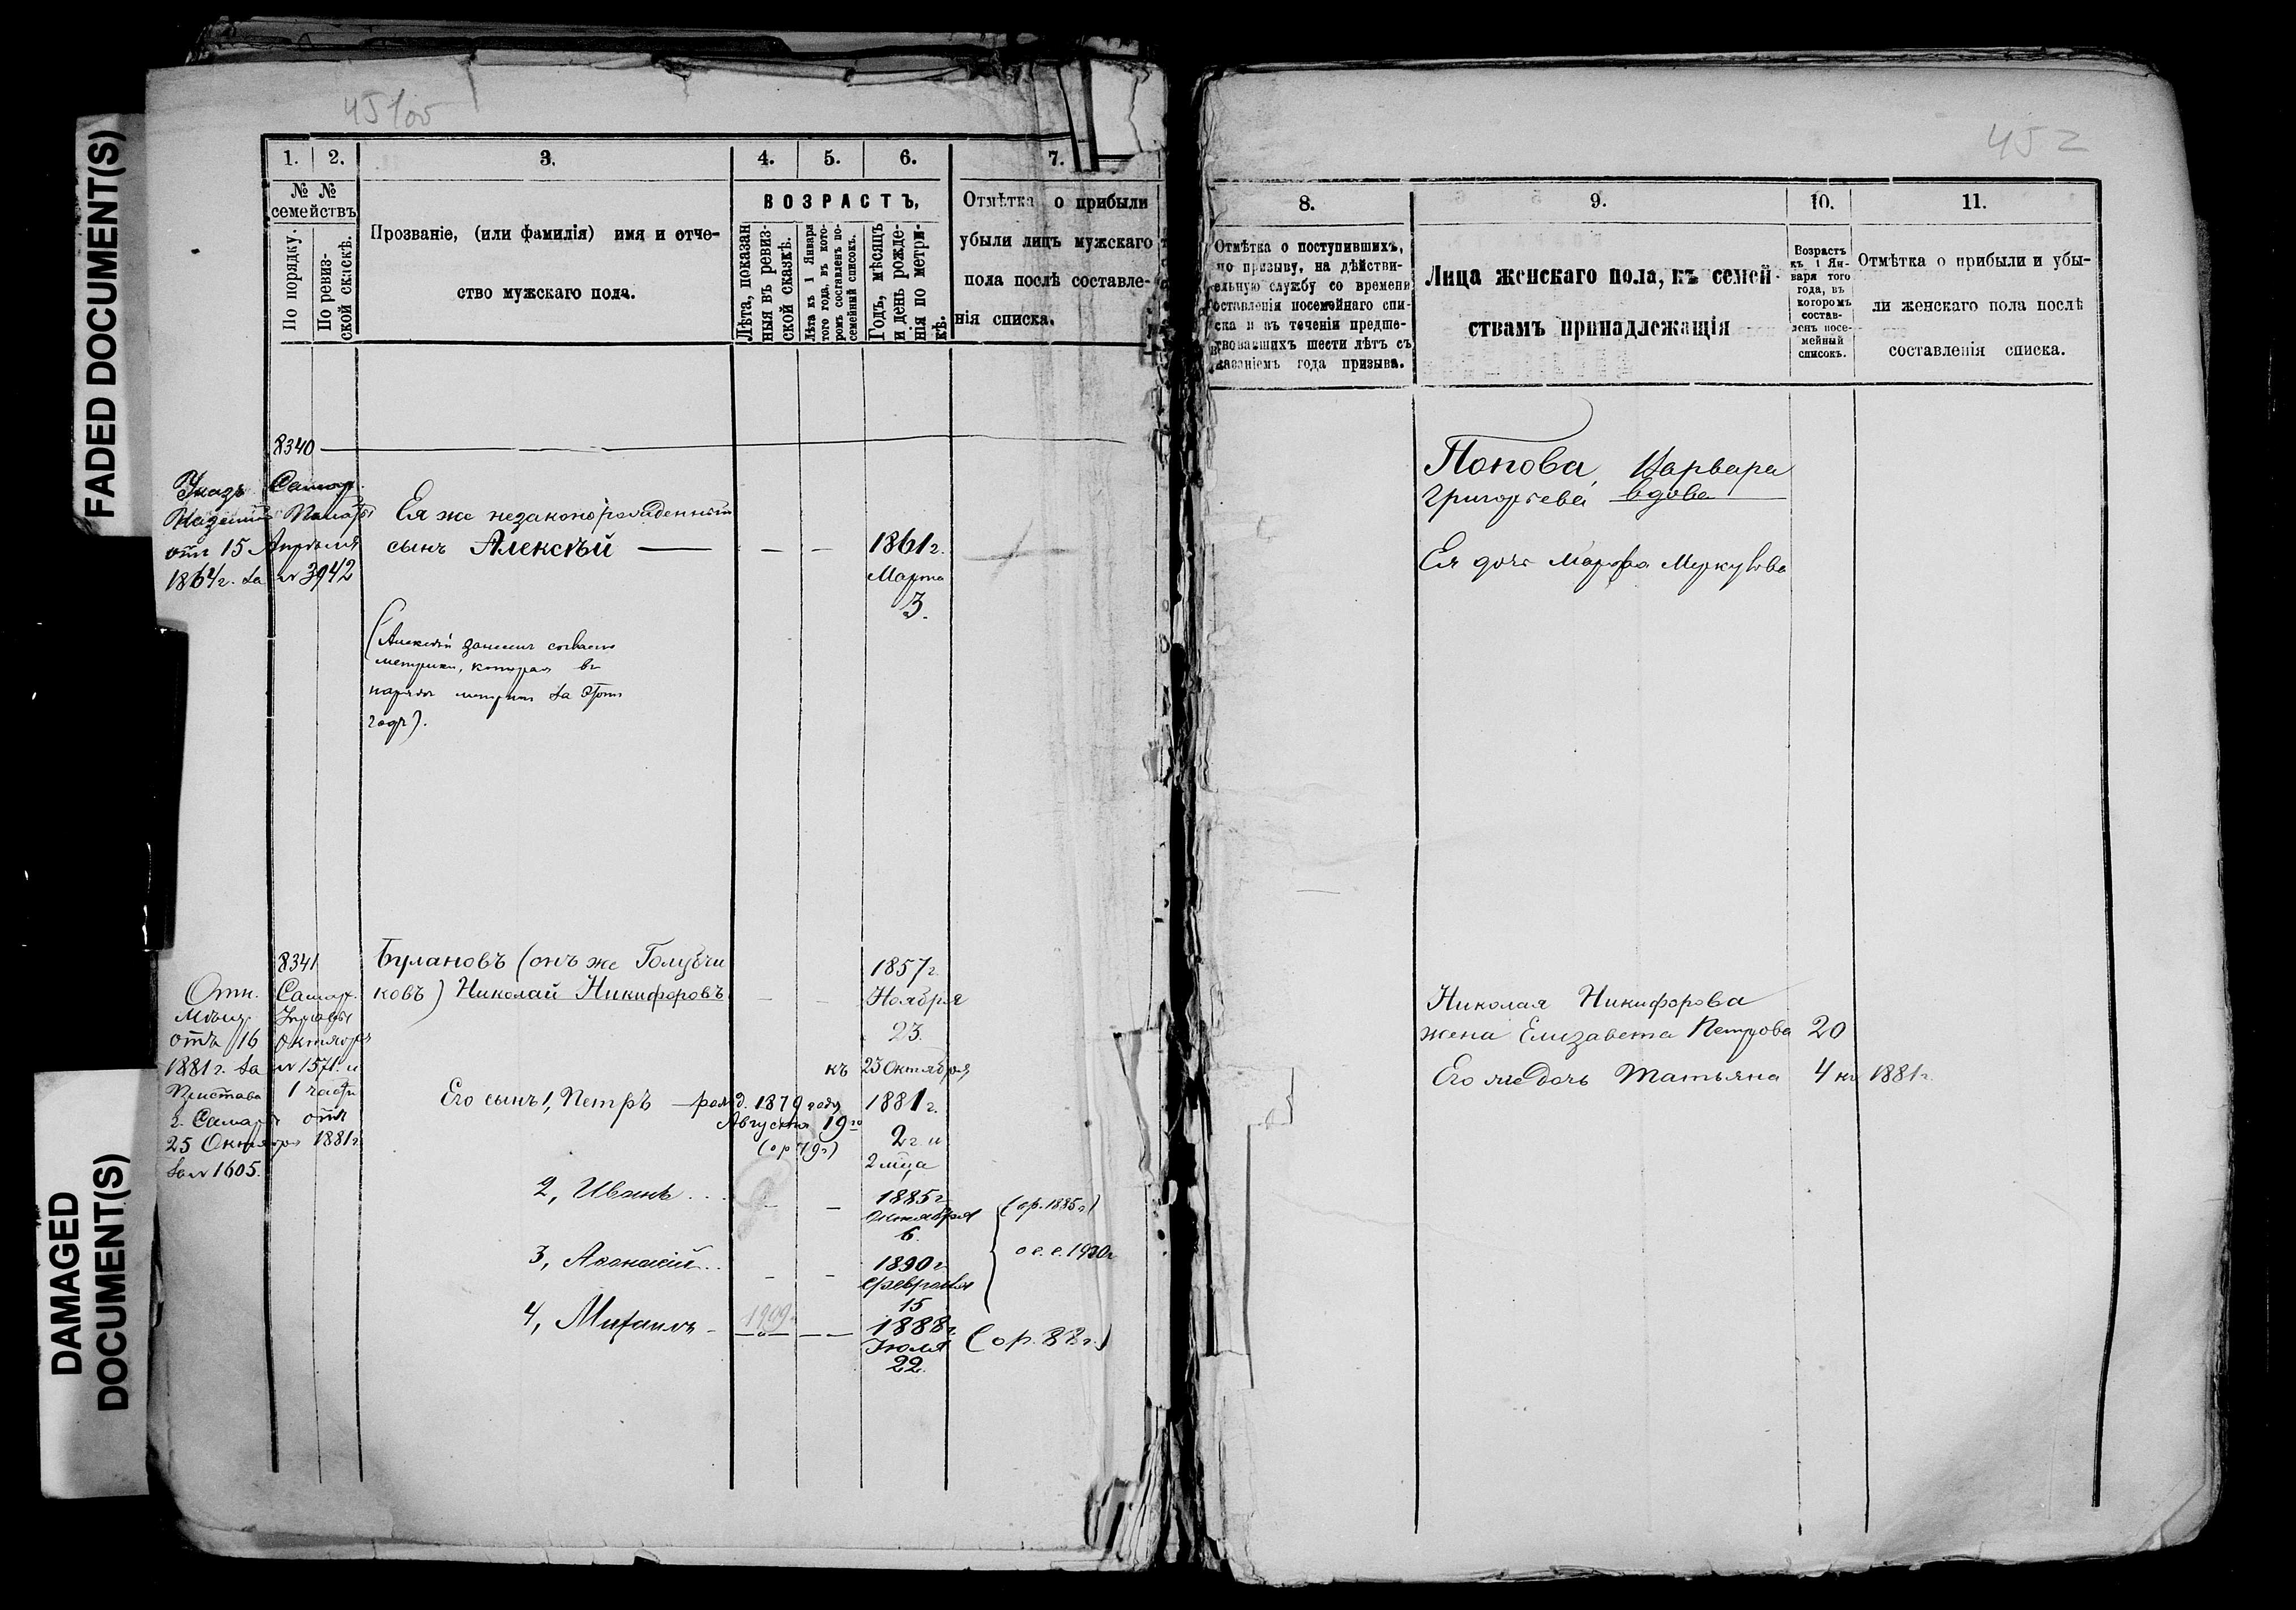 FADED DOCUMENT(S)
DAMAGED
DOCUMENT(S)
1. 2. 3. 4. 5. 6. 7.
№ №
семействъ
По порядку.
По ревиз-
ской сказкѣ.
Прозваніе, (или фамилія) имя и отче-
ство мужскаго пола.
ВОЗРАСТЪ,
Лѣта, показан
ныя въ ревиз-
ской сказкѣ.
Лѣта къ 1 Января
того года, въ кото-
ромъ составленъ по-
семейный списокъ.
Годъ, мѣсяцъ
и день рожде-
нія по метри-
кѣ.
Отмѣтка о прибыли
убыли лицъ мужскаго
пола послѣ составле-
нія списка.
8340
Указъ Самар.
Казенной Палаты
отъ 15 Апрѣля
1864 г. за № 3942
Ея же незаконорожденный
сынъ Алексѣй — — — 1861 г.
Марта
3.
(Алексѣй занесенъ согласно
метрики, которая въ
нарядѣ метрикъ за этотъ
годъ).
8341
Отн. Самар.
Мѣщ. Управы
отъ 16 Октября
1881 г. за № 1571. и
Пристава 1 части
г. Самары отъ
25 Октября 1881 г.
за № 1605.
Булановъ (онъ же Голубчи
ковъ) Николай Никифоровъ — —
1857 г.
Ноября
23.
къ 25 Октября
Его сынъ 1, Петръ — рожд. 1879 году 1881 г.
Августа 19го
(ор 79 г) 2 г. и
2 мѣца
2, Иванъ . . . — — 1885 г.
Октября
6.
(ор. 1885 г)
3, Афанасій . . — — 1890 г.
Февраля
15
4, Михаилъ - 1909 — — 1888 г.
Іюля
22.
(ор. 88 г.)
452
8. 9. 10. 11.
Отмѣтка о поступившихъ,
по призыву, на дѣйстви-
ельную службу со времени
оставленія посемейнаго спи-
ска и въ теченіи предше-
твовавшихъ шести лѣтъ съ
казаніемъ года призыва.
Лица женскаго пола, къ семей-
ствамъ принадлежащія
Возрастъ
къ 1 Ян-
варя того
года, въ
которомъ
состав-
ленъ посе-
мейный
списокъ.
Отмѣтка о прибыли и убы-
ли женскаго пола послѣ
составленія списка.
Попова, Варвара
Григорьева вдова
Ея дочь Марфа
Николая Никифорова
жена Елизавета Петрова 20
Его же дочь Татьяна 4 къ 1881 г.